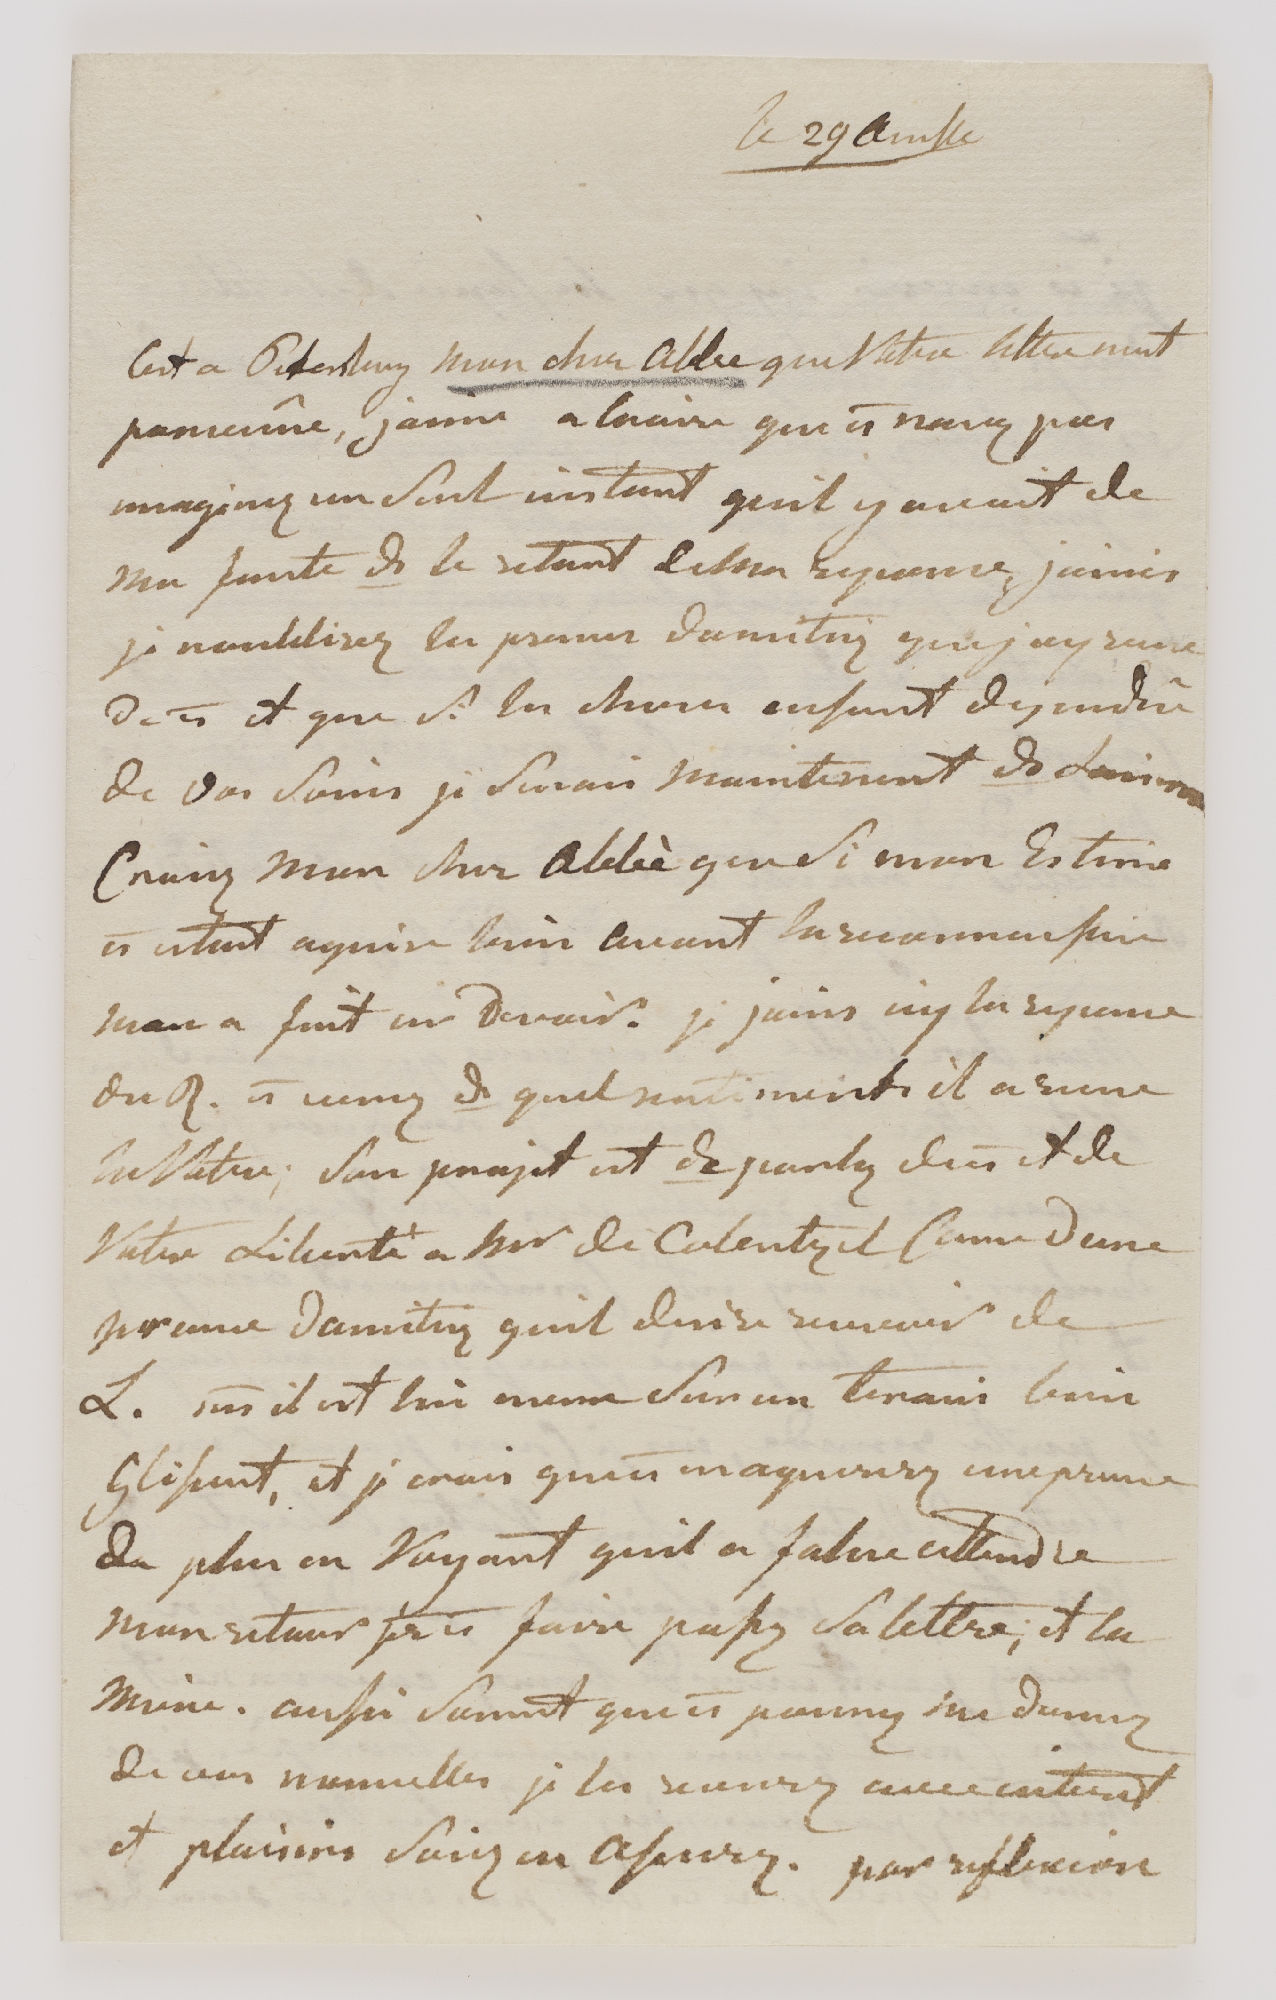 le 29
Cest a Petersburg mon cher Abbée que Votre lettre mest
parvenûe, jaime a croire que vs navez pas
imaginez un Seul instant quil y avait de
ma faute ds le retard de ma reponce, jamais
je noublirez les preuves damitiez que jay recue
de vs et que Si les chers enfant dependû
de vos Soins je Serais maintenant ds
Croiez Mon cher Abbéè que Si mon Estime
vs etait aquise bien avant la reconnaissence
men a fait un Devoir. je joins icy la reponce
du R. vs verrez ds quel sentiments il a recue
la Votre; Son projet est de parlez de vs et de
Votre Liberté a Mr de Calent il Come Dune
preuve Damitiez quil desire recevoir de
L. mais il est lui meme Sur un terain bien
Glissent, et je crois que vs en aquererez une preuve
de plus en Voyant quil a falue attendre
mon retour pr vs faire passez Sa lettre; et la
Mienne. aussi Souvent que vs pourrez me Donnez
de vos nouvelles je les recevrez avec interest
et plaisirs Soiez en Assurez. par reflexion